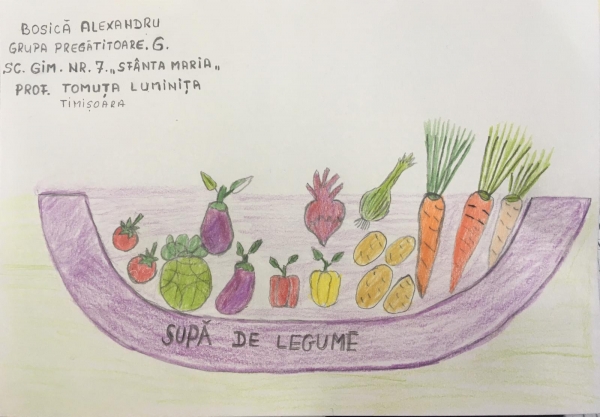 BOSICĂ ALEXANDRU
GRUPA PREGĂTITOARE. G.
SC. GIM. NR. 7. „SFÂNTA MARIA„
PROF. TOMUȚA LUMINIȚA
TIMIȘOARA
SUPĂ DE LEGUME